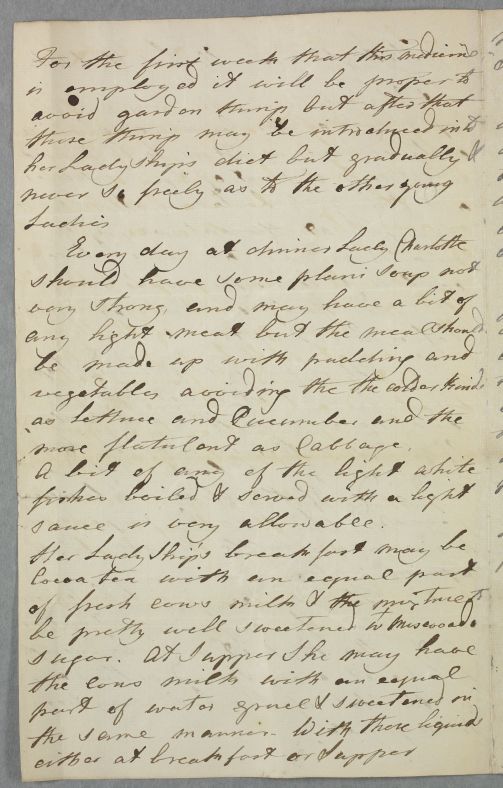 For the first week that this medicine
is employed it will be proper to
avoid garden things but after that
those things may be introduced into
her Ladyships diet but gradually &
never so freely as to the other young
Ladies
Every day at dinner Lady Charlotte
should have some plain soup not
very strong, and may have a bit of
any light meat but the meal should
be made up with pudding and
vegetables avoiding the the colder kinds
as Lettuce and Cucumber and the
more flatulent as Cabbage.
A bit of any of the light white
fishes boiled & served with a light
sauce is very allowable.
Her Ladyships breakfast may be
Cocoa tea with an equal part
of fresh cows milk & the mixture to
be pretty well sweetened w Muscovado
sugar. At Supper She may have
the Cows milk with an equal
part of water gruel & sweetened in
the same manner. With these liquids
either at breakfast or Supper